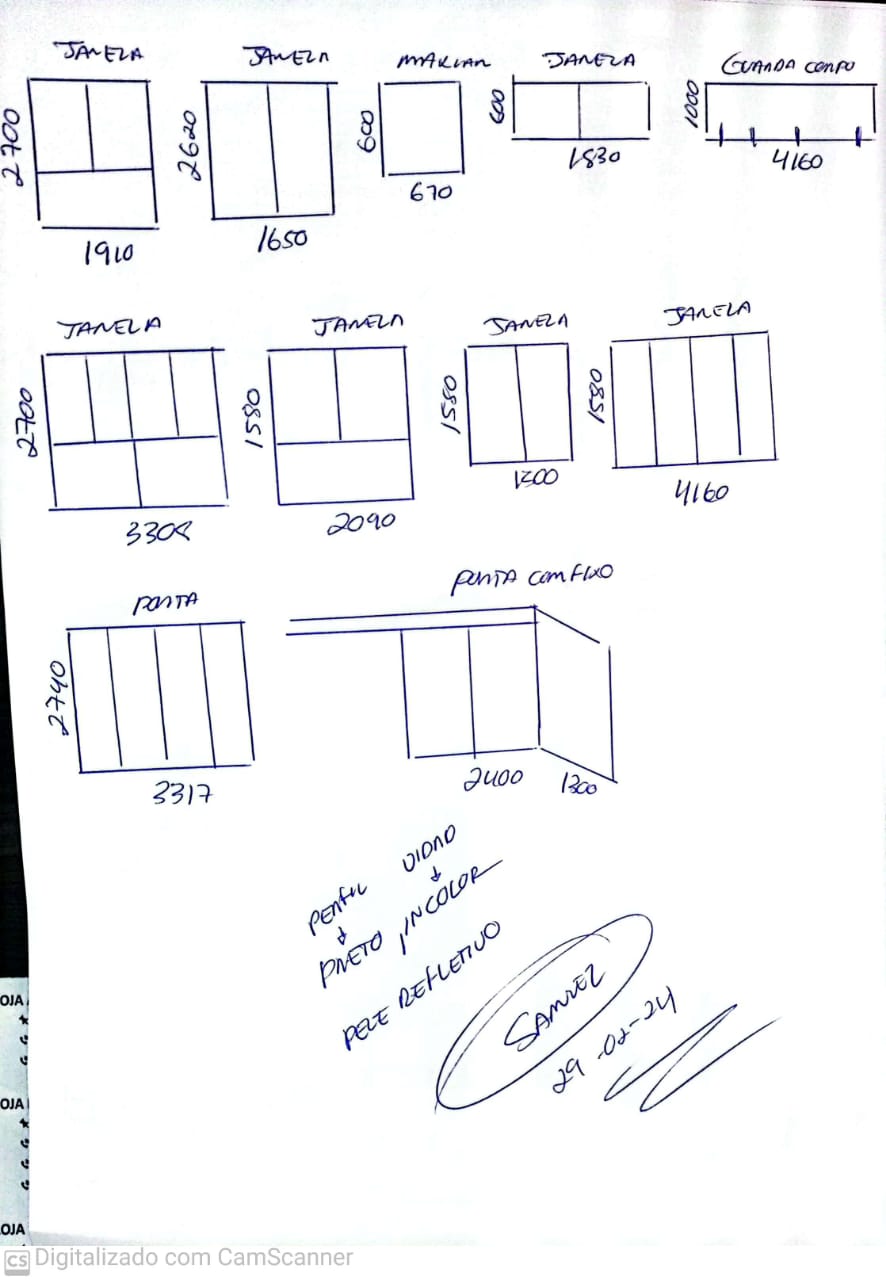 JANELA
2700
1910
JANELA
2620
1650
MAXIAR
600
670
JANELA
600
1830
GUARDA CORPO
1000
4160
JANELA
2700
3308
JANELA
1580
2090
JANELA
1580
1300
JANELA
1580
4160
PORTA
2740
3317
PORTA COM FIXO
2400
1300
PERFIL VIDRO
PRETO, INCOLOR
PELE REFLETIVO
SAMUEL
29-02-24
OJA
OJA
OJA
CS Digitalizado com CamScanner